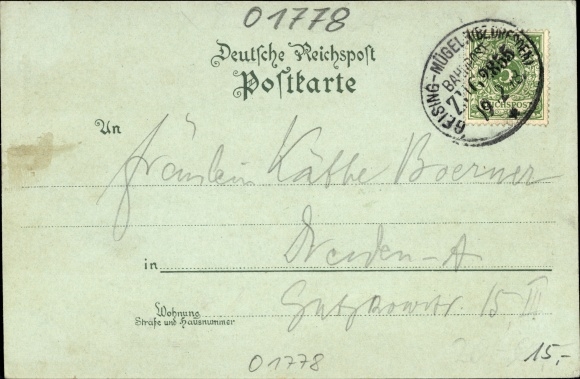 01778
Deutsche Reichspost
Postkarte
GEISING-MÜGELN (BZ. DRESDEN)
BAHNPOST
ZUG 2855
19
REICHSPOST
An
Fräulein Käthe Boerner
in Dresden-A
Wohnung
Straße und Hausnummer
Gutzkowstr. 15, III
15,-
01778